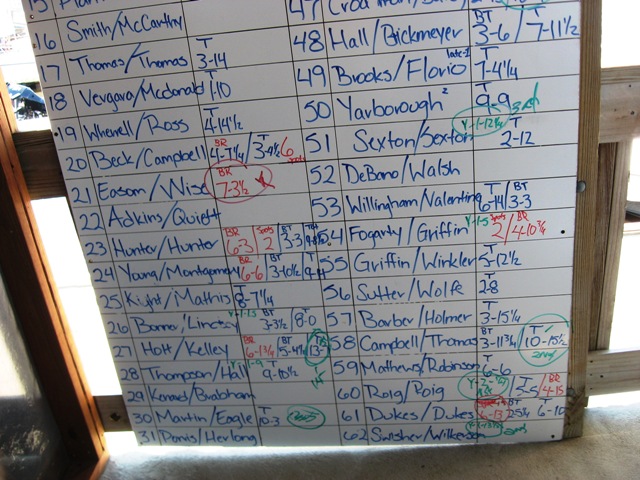 16 Smith/McCarthy
17 Thomas/Thomas T 3-14
18 Vergara/Mcdonald T 1-10
19 Wherell/Ross T 4-14½
20 Beck/Campbell BR 4-7¼ T 3-4½ 6 spots
21 Eason/Wise BR 7-3½
22 Adkins/Quiett
23 Hunter/Hunter BR 6-3 Spots 2 BT 3-3
24 Young/Montgomery BR 6-6 BT 3-10½ T
25 Kight/Mathis T 8-7¼
26 Bonner/Lindsey Y-1-15 BT 3-3½ T 8-0
27 Hott/Kelley BR 6-13¼ BT 5-4¼ T 13-
28 Thompson/Hall T 9-10½
29 Brabham
30 Martin/Eagle T 10-3
31 Herlong
47
48 Hall/Brickmeyer BT 3-6 / T 7-11½
49 Brooks/Florio late-1 T 7-4¼
50 Yarborough² T 9-9 3rd
51 Sexton/Sexton Y-1-12¼ T 2-12
52 DeBano/Walsh
53 Willingham/Nalentine T 6-14 BT 3-3
54 Fogarty/Griffin Y-1-5 Spots 2 BR 4-10¾
55 Griffin/Winkler T 5-12½
56 Sutter/Wolfe T 2-8
57 Barber/Holmer T 3-15¼
58 Campbell/Thomas BT 3-11¾ T 10-15½ 2nd
59 Mathews/Robinson T 6-6
60 Roig/Roig T 5-5 BR 4-15
61 Dukes/Dukes BR 6-13 BT 2-5¼ T 6-10
62 Swisher/Wilkerson